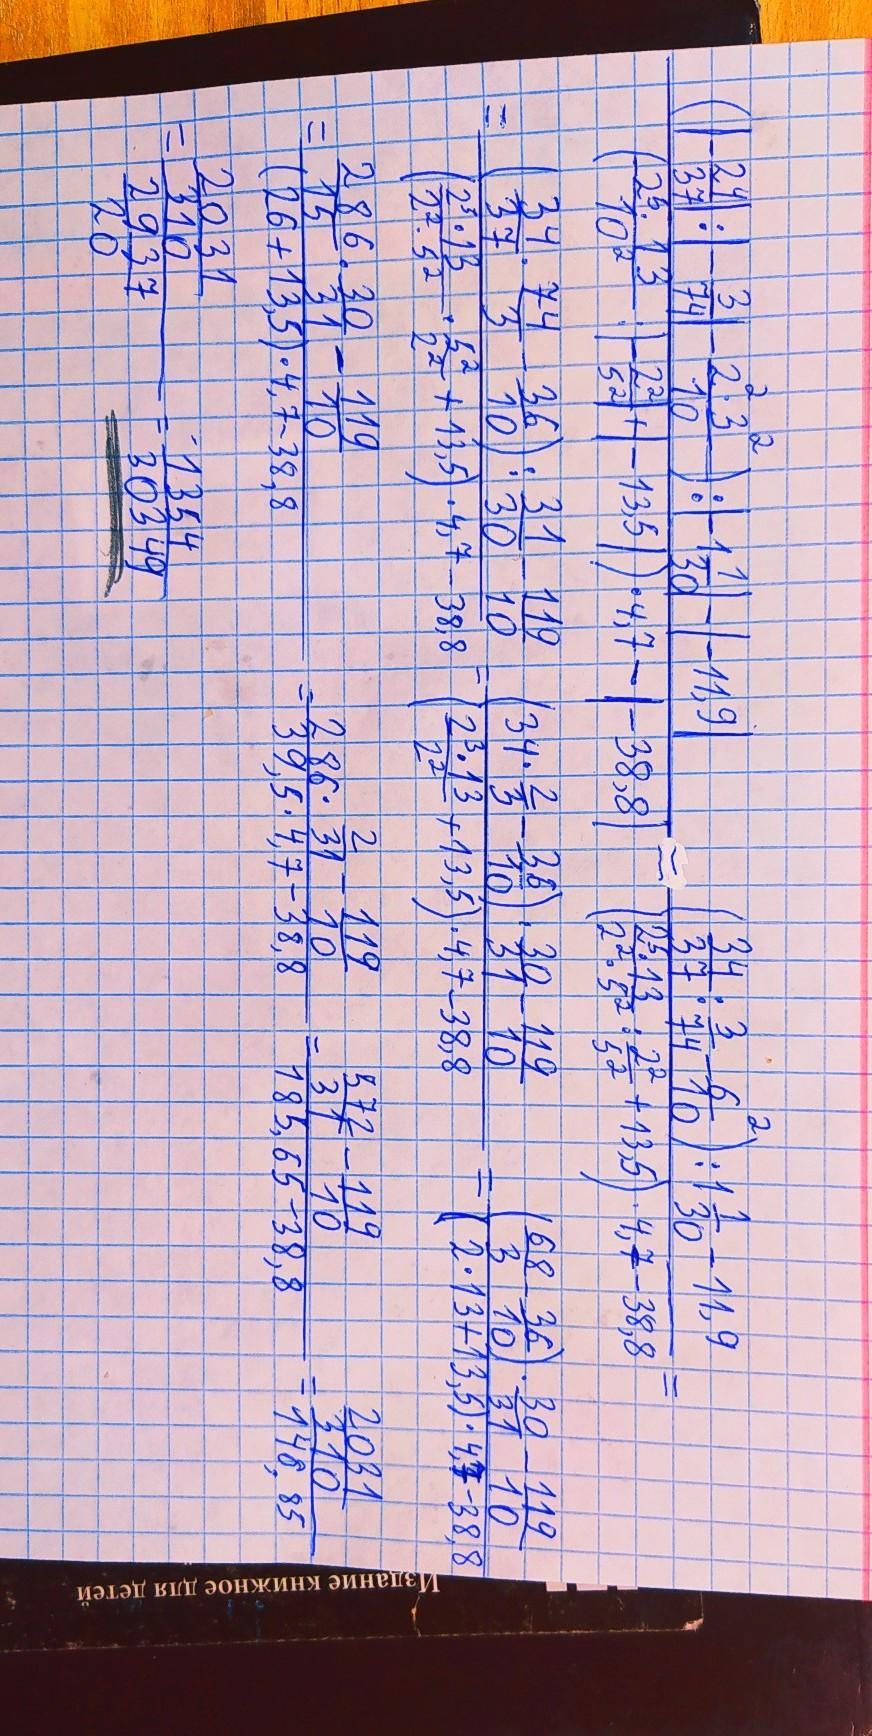 (|-24/37| : |-3/74| - 2²·3²/10) : |-1 1/30| - |-11,9| / (2⁵·13/10² : |-2²/5²| + |-13,5|)·4,7 - |-38,8| = (34/37 : 3/74 - 6²/10) : 1 1/30 - 11,9 / (2⁵·13/2²·5² : 2²/5² + 13,5)·4,7 - 38,8 =
= (34/37 · 74/3 - 36/10) : 31/30 - 119/10 / (2³·13/2²·5² · 5²/2² + 13,5)·4,7 - 38,8 = (34 · 2/3 - 36/10) · 30/31 - 119/10 / (2³·13/2² + 13,5)·4,7 - 38,8 = (68/3 - 36/10) · 30/31 - 119/10 / (2·13 + 13,5)·4,7 - 38,8
= 286/15 · 30/31 - 119/10 / (26 + 13,5)·4,7 - 38,8 = 286 · 2/31 - 119/10 / 39,5·4,7 - 38,8 = 572/31 - 119/10 / 185,65 - 38,8 = 2031/310 / 146,85
= 2031/310 / 2937/20 = 1354/30349
Издание книжное для детей